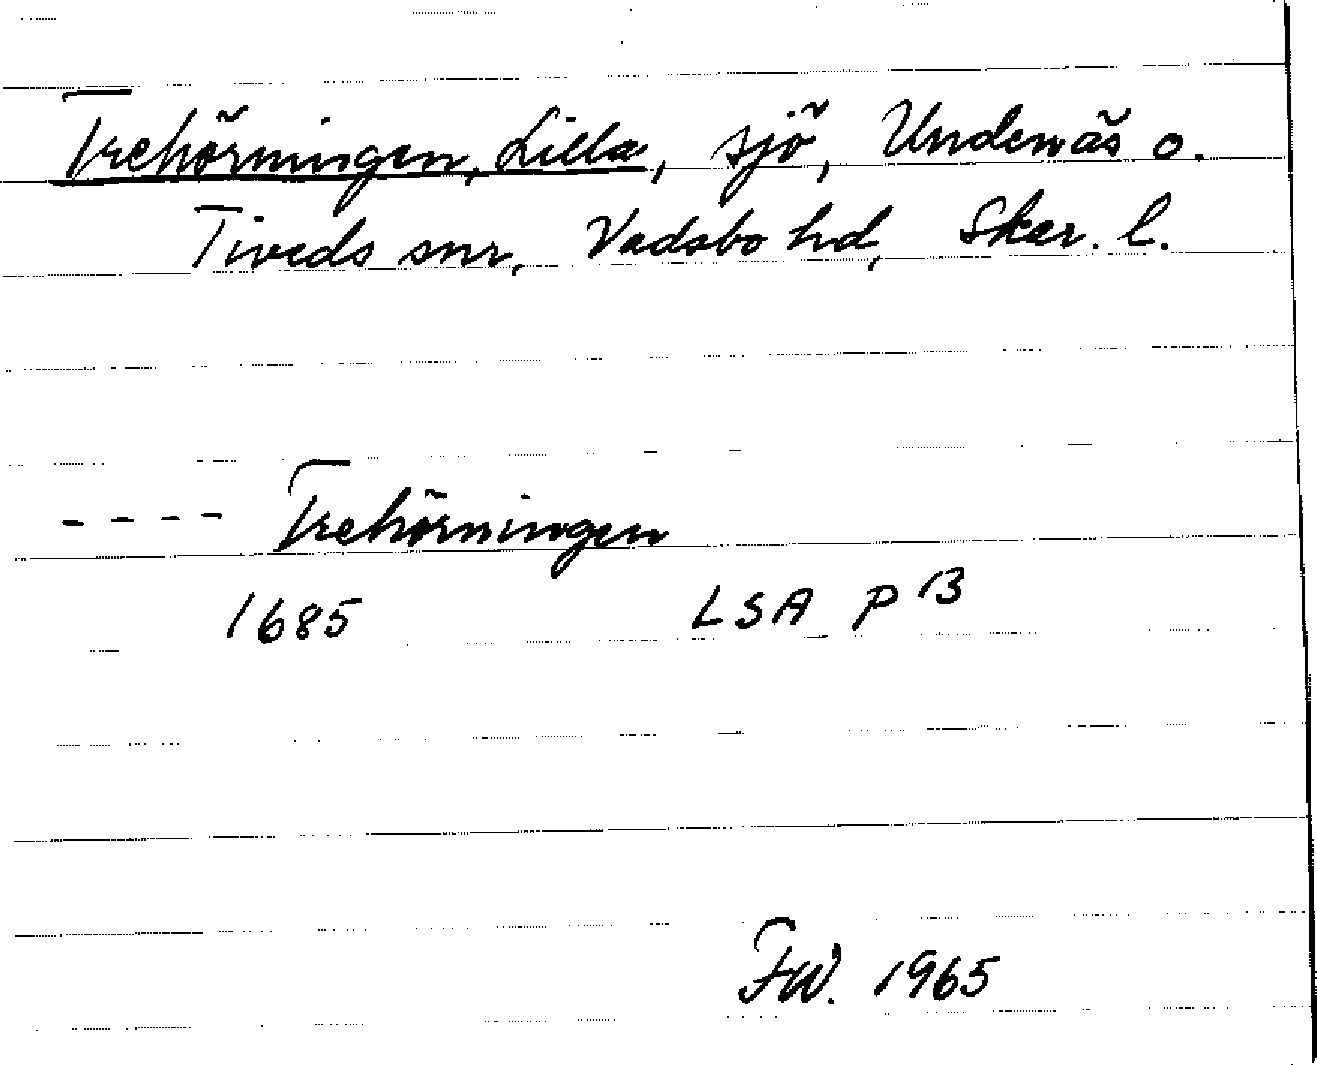 Trehörningen, Lilla, sjö, Undenäs o.
Tiveds snr, Vadsbo hd, Skar. l.
- - - - Trehörningen
1685 LSA P 13
FW. 1965